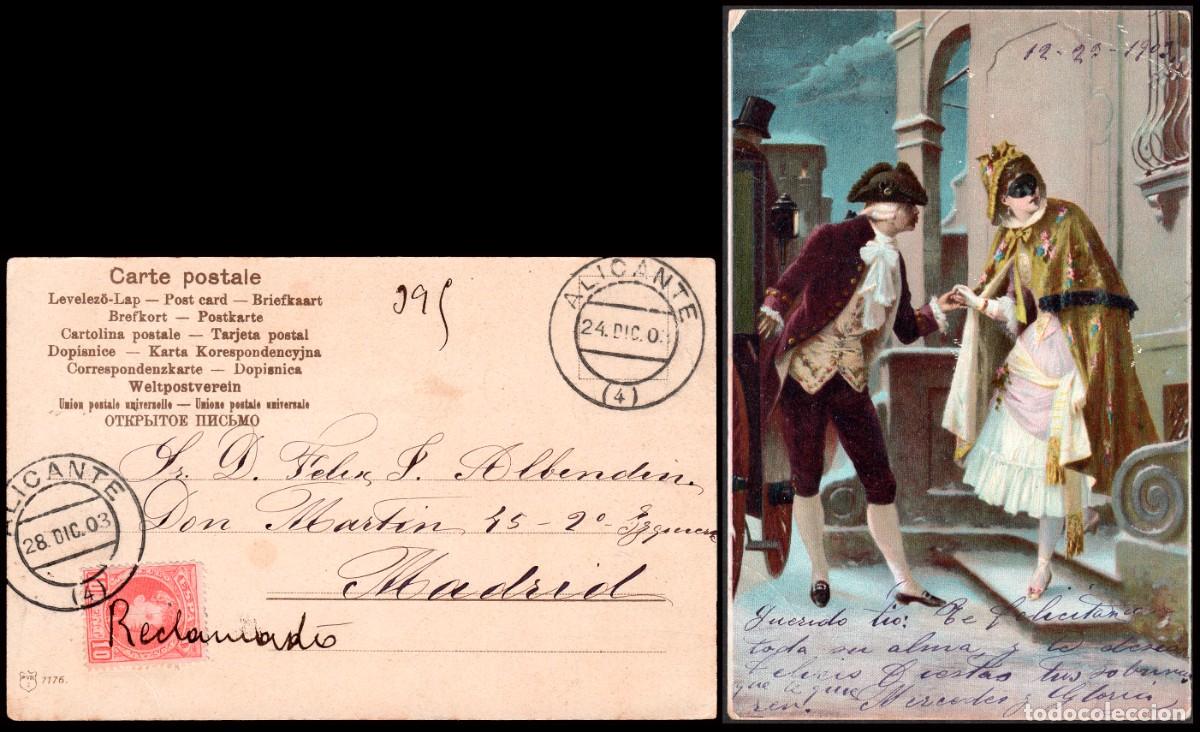 Carte postale
Levelező-Lap — Post card — Briefkaart
Brefkort — Postkarte
Cartolina postale — Tarjeta postal
Dopisnice — Karta Korespondencyjna
Correspondenzkarte — Dopisnica
Weltpostverein
Union postale universelle — Unione postale universale
ОТКРЫТОЕ ПИСЬМО
395
ALICANTE
24.DIC.03
(4)
Sr. D. Felix J. Albendin
Don Martin 45 - 2º Izquierda
Madrid
ALICANTE
28.DIC.03
(4)
Reclamado
7176.
12-23-1903
Querido tio: Te felicitan con
toda su alma y te desean
felices Fiestas tus sobrinas
que te quie
ren. Mercedes y Gloria
todocoleccion